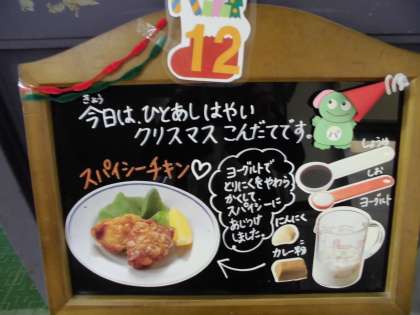 12
きょう
今日は、ひとあしはやい
クリスマスこんだてです。
スパイシーチキン♡
ヨーグルトで
とりにくをやわら
かくして、
スパイシーに
あじつけ
しました。
しょうゆ
しお
ヨーグルト
にんにく
カレー粉
こ